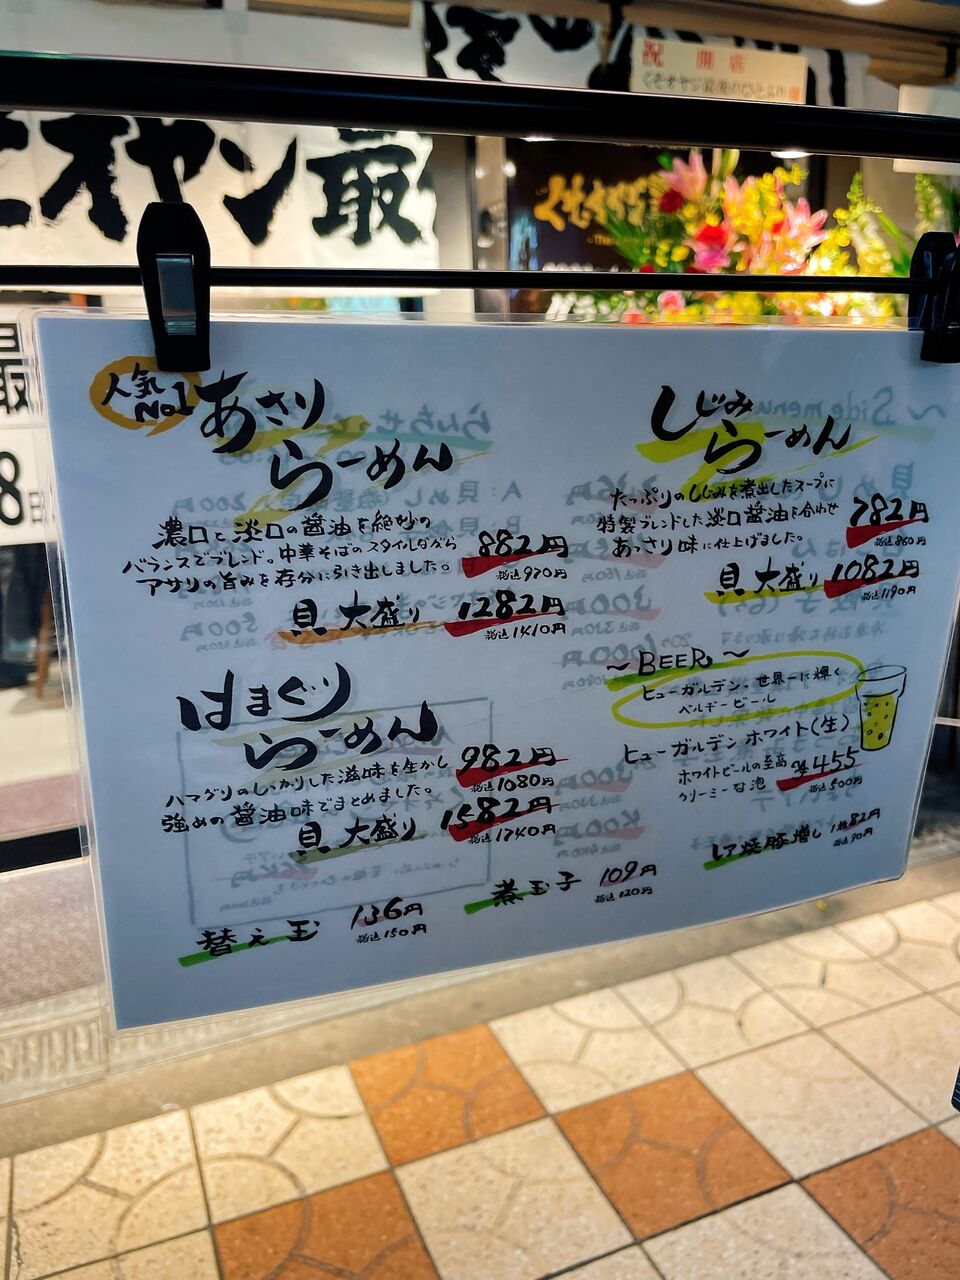 祝 開店
くそオヤジ最後のひとふり
オヤジ最
人気
No1
あさり
らーめん
濃口と淡口の醤油を絶妙の
バランスでブレンド。中華そばのスタイルながら
アサリの旨みを存分に引き出しました。
882円
税込970円
貝 大盛り 1282円
税込1410円
しじみ
らーめん
たっぷりのしじみを煮出したスープに
特製ブレンドした淡口醤油を合わせ
あっさり味に仕上げました。
782円
税込860円
貝 大盛り 1082円
税込1190円
はまぐり
らーめん
ハマグリのしっかりした滋味を生かし
強めの醤油味でまとめました。
982円
税込1080円
貝 大盛り 1582円
税込1740円
〜BEER〜
ヒューガルデン。世界一に輝く
ベルギービール
ヒューガルデンホワイト(生)
ホワイトビールの至高
クリーミーな泡
¥455
税込500円
替え玉 136円
税込150円
煮玉子 109円
税込120円
レア焼豚増し 1枚82円
税込90円
8日